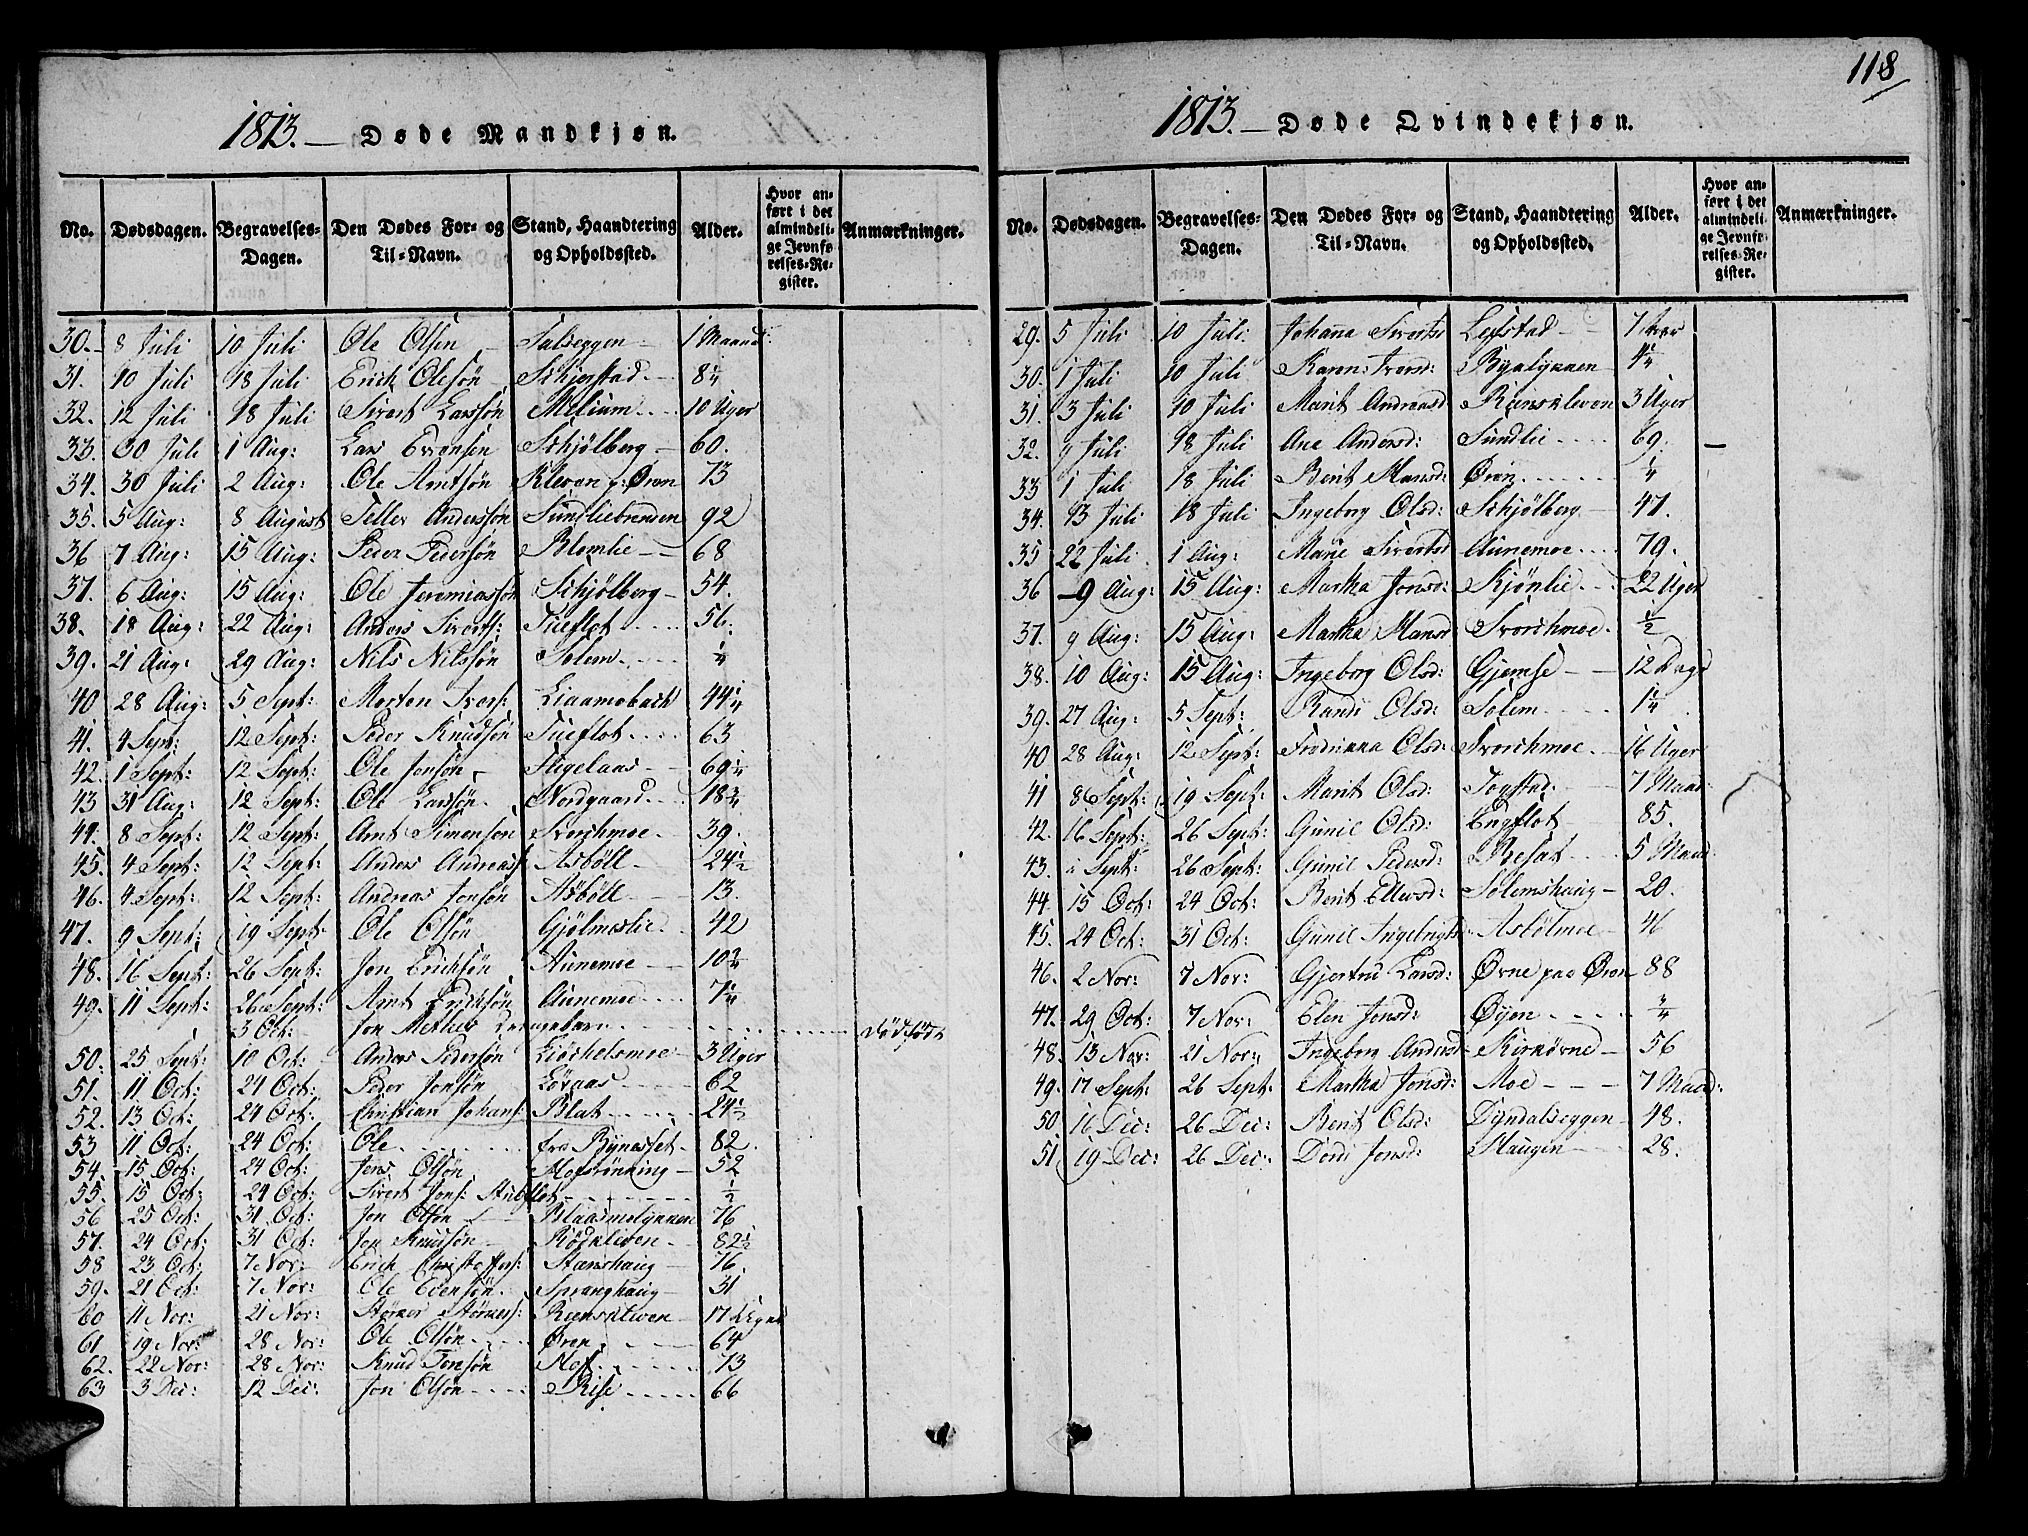 118
1813. — Døde Mandkjøn.
No. Dødsdagen. Begravelses-Dagen. Den Dødes For- og Til-Navn. Stand, Haandtering og Opholdssted. Alder. Hvor anført i det almindelige Jevnførelses-Register. Anmærkninger.
30. 8 Juli 10 Juli Ole Olsen Salseggen 1 Maand:
31. 10 Juli 18 Juli Erich Olesøn Schjerstad 8 1/4
32. 12 Juli 18 Juli Sivert Larssøn Melium 10 Uger
33. 30 Juli 1 Aug: Lars Evensen Schjølberg 60.
34. 30 Juli 2 Aug: Ole Arntsøn Kleven p: Øren 73
35. 5 Aug: 8 August Seller Anderssøn Sundliebrenden 92
36 7 Aug: 15 Aug: Peder Pedersøn Blomlie 68
37. 6 Aug: 15 Aug: Ole Jeremiassøn Schjølberg 54.
38. 18 Aug: 22 Aug: Anders Sivers: Tueflot 56.
39. 21 Aug: 29 Aug: Nils Nilssøn Solem 1/4
40 28 Aug: 5 Sept: Morten Ivers: Liaamobach 44 1/4
41. 4 Sept: 12 Sept: Peder Knudsøn Tueflot 63
42. 1 Sept: 12 Sept: Ole Jonsøn Fugelaas 69 1/4
43 31 Aug: 12 Sept: Ole Larssøn Nordgaard 18 3/4
44. 8 Sept: 12 Sept: Arnt Simensøn Svorchmoe 39.
45. 4 Sept: 12 Sept: Anders Andreass: Asbøll 24 1/2
46. 4 Sept: 12 Sept: Andreas Jonsøn Asbøll 13.
47. 9 Sept: 19 Sept: Ole Olsøn Gjølmeslie 42
48. 16 Sept: 26 Sept: Jon Ericksøn Aunemoe 10 3/4
49. 11 Sept: 26 Sept: Arnt Ericksøn Aunemoe 7 1/4
3 Oct: Jon Melhus Drengebarn dødfødt
50. 25 Sept: 10 Oct: Anders Pedersøn Lischelsmoe 3 Uger
51. 11 Oct: 24 Oct: Peder Jonsøn Løraas 62
52. 13 Oct: 24 Oct: Christian Johans: Blat 24 1/2
53 11 Oct: 24 Oct: Ole fra Bynesset 82
54. 15 Oct: 24 Oct: Jens Olsøn Hofstinning 52
55. 15 Oct: 24 Oct: Sivert Jons: Stubflot 1/2
56 25 Oct: 31 Oct: Jon Olsøn Blaasmolynnen 76
57. 24 Oct: 31 Oct: Jon Knudsøn Rødkleven 82 1/2
58 23 Oct: 7 Nov: Erich Christoffers: Stenshaug 76.
59. 21 Oct: 7 Nov: Ole Evensøn Spranghaug 31
60 11 Nov: 21 Nov: Størker Størkers: Ramskleven 17 Dage
61 19 Nov: 28 Nov: Ole Olsøn Øren 64
62. 22 Nov: 28 Nov: Knud Jonsøn Hof 73
63 3 Dec: 12 Dec: Jon Olsøn Rise 66
1813. — Døde Qvindekjøn.
No. Dødsdagen. Begravelses-Dagen. Den Dødes For- og Til-Navn. Stand, Haandtering og Opholdssted. Alder. Hvor anført i det almindelige Jevnførelses-Register. Anmærkninger.
29. 5 Juli 10 Juli Johanna Siverts: Lefstad 7
30. 1 Juli 10 Juli Karen Iversd: Byalynnen 4 1/4
31. 3 Juli 10 Juli Marit Andreasd Ramskleven 3 Uger
32. 9 Juli 18 Juli Ane Andersd: Sundlie 69.
33 1 Juli 18 Juli Berit Hansd: Øren 1/4
34. 13 Juli 18 Juli Ingeborg Olsd: Schjølberg 47.
35 22 Juli 1 Aug: Marie Sivertsd Aunemoe 79.
36 9 Aug: 15 Aug: Martha Jonsd: Kjønlie 22 Uger
37. 9 Aug: 15 Aug: Martha Hansd Svorchmoe 1/2
38. 10 Aug: 15 Aug: Ingeborg Olsd: Gjemse 12 Dage
39. 27 Aug: 5 Sept: Randi Olsd: Solem 1 1/4
40 28 Aug: 12 Sept: Fredrikka Olsd: Svorchmoe 16 Uger
41 8 Sept: 19 Sept: Marit Olsd: Togstad 7 Maad:
42. 16 Sept: 26 Sept: Gunil Olsd: Engflot 85.
43. Sept: 26 Sept: Gunil Pedersd: Resat 5 Maad:
44 15 Oct: 24 Oct: Berit Ellevsd: Solemshaug 20.
45. 24 Oct: 31 Oct: Gunil Ingebrigts: Asbølmoe 46
46. 2 Nov: 7 Nov: Gjertrud Larsd: Ørne paa Øren 88
47. 29 Oct: 7 Nov: Elen Jonsd: Øyen 3/4
48. 13 Nov: 21 Nov: Ingeborg Andersd Kirkørne 56
49. 17 Sept: 26 Sept: Martha Jonsd: Moe 7 Maad:
50 16 Dec: 26 Dec: Berit Olsd: Dyndalseggen 48.
51 19 Dec: 26 Dec: Dordi Jonsd: Haugen 28.